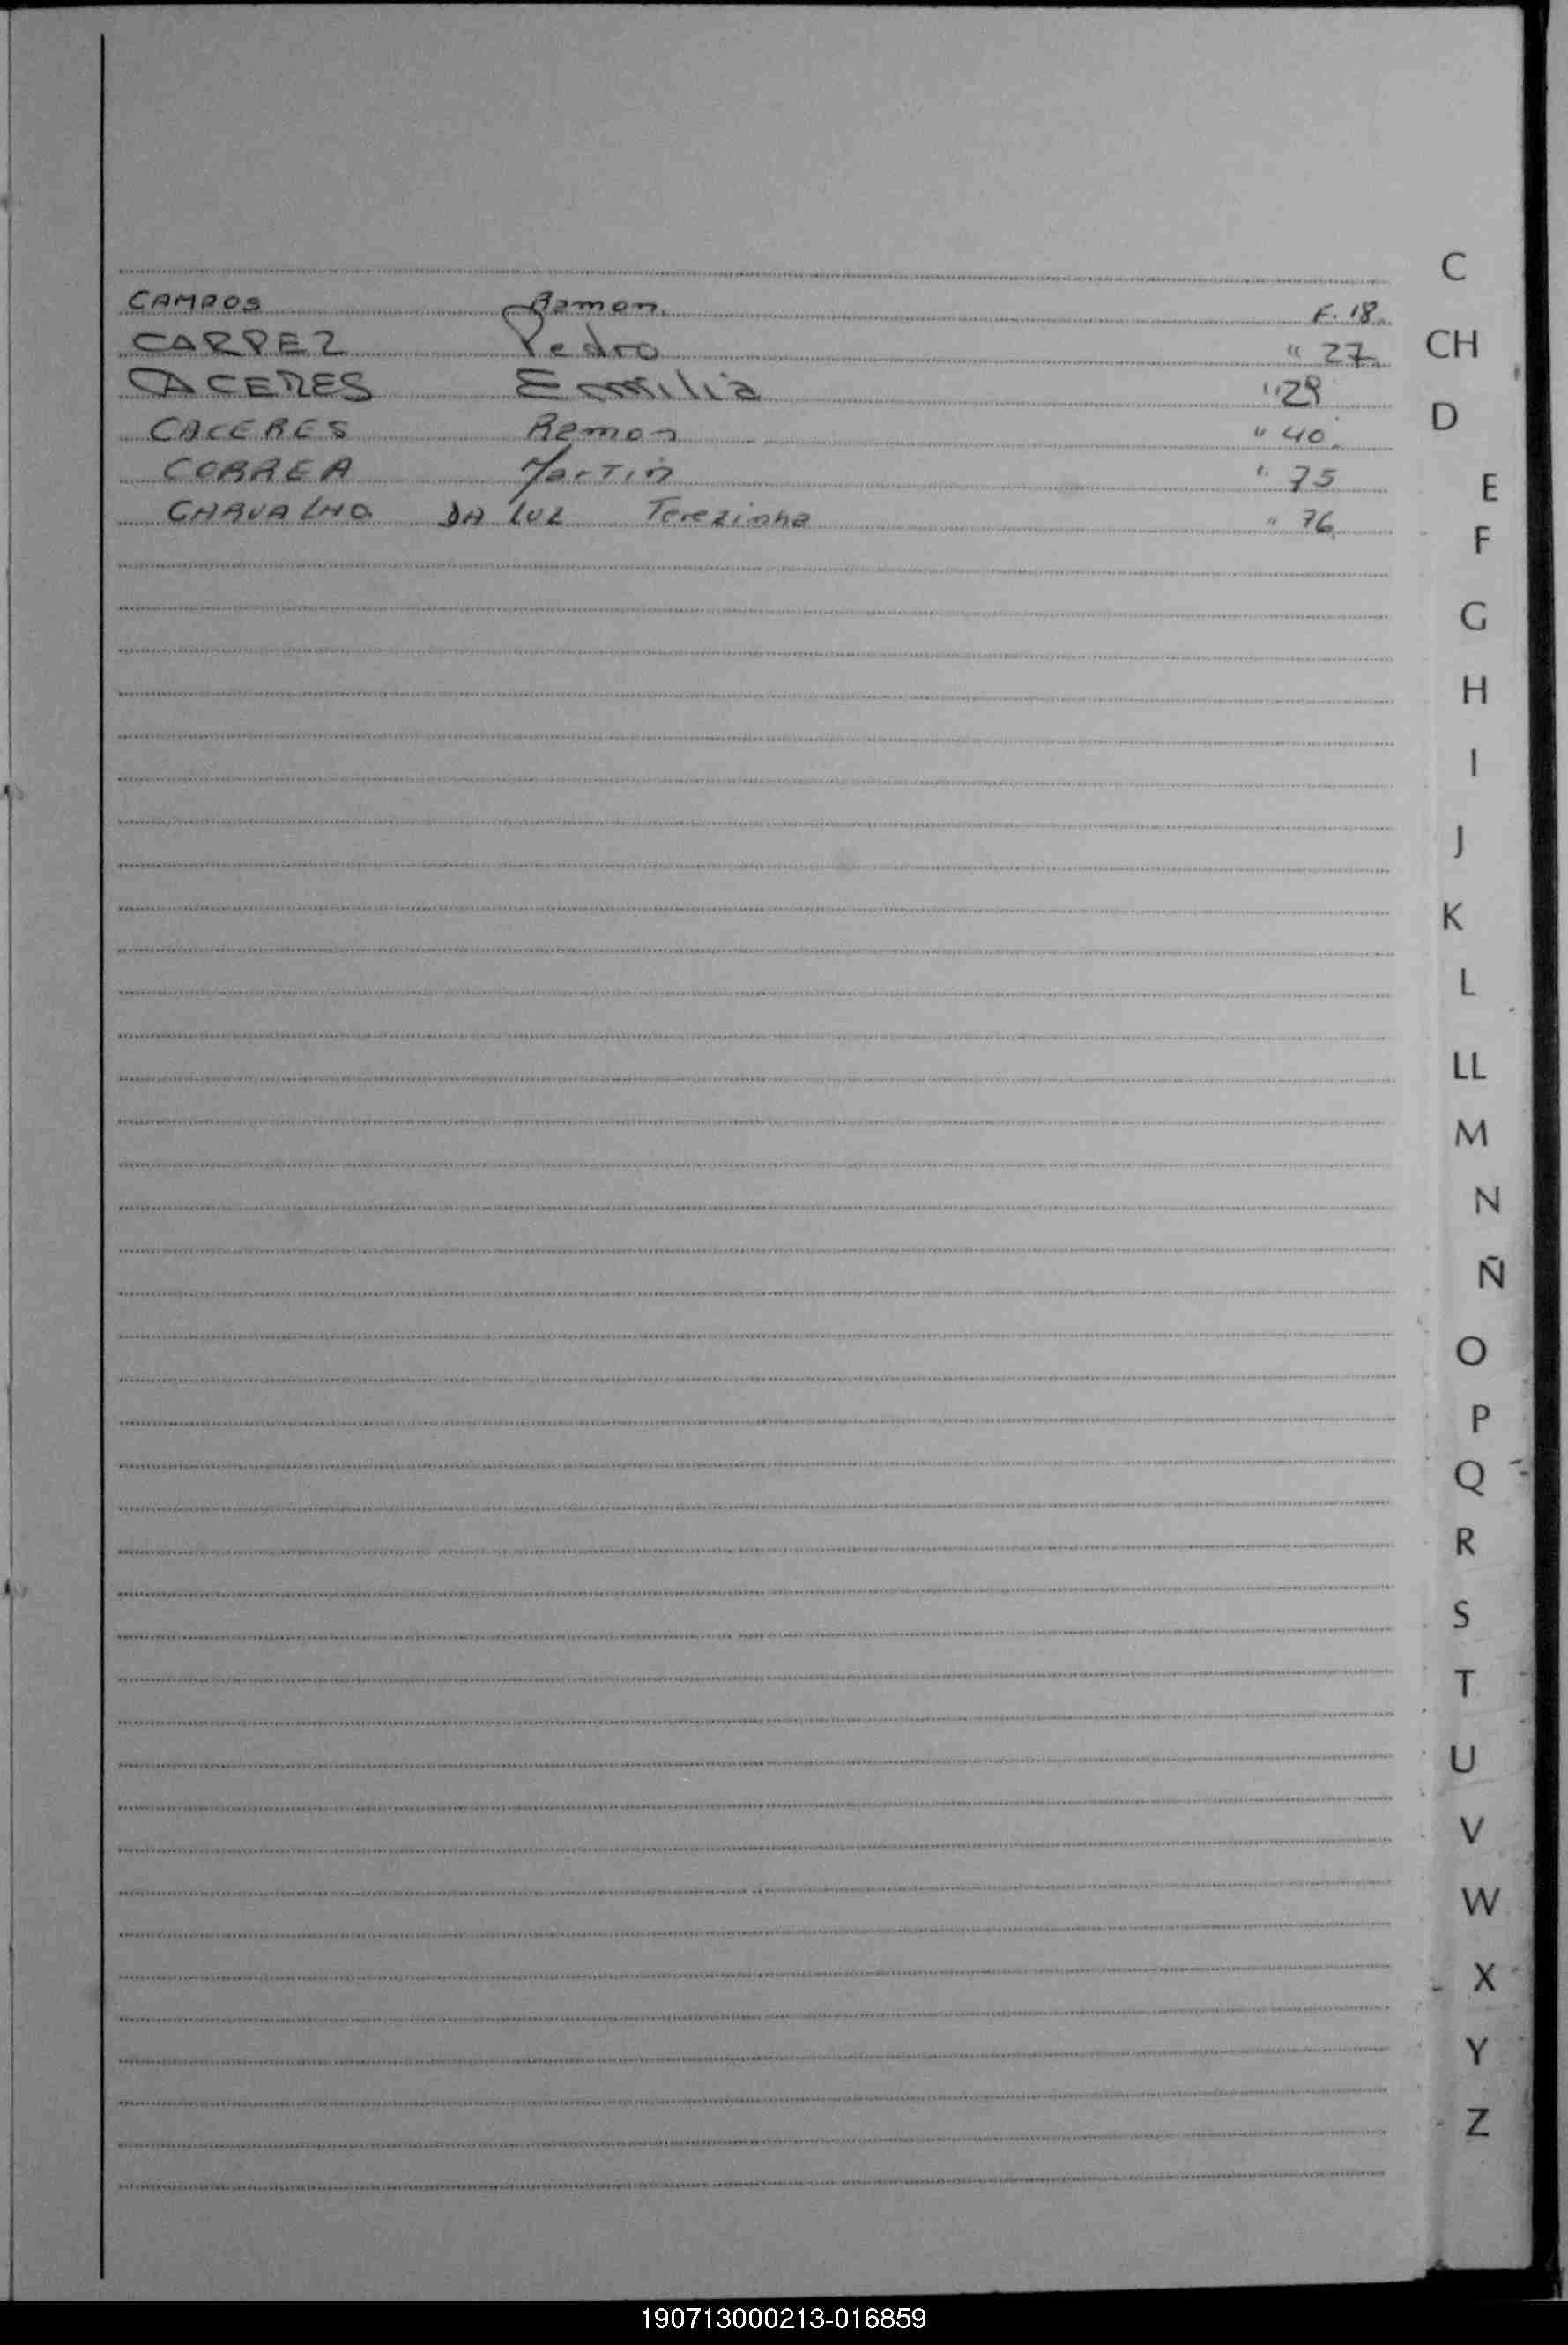 C
CAMPOS Ramon. F. 18.
CARPEZ Pedro " 27.
CH
CACERES Emilia " 29
D
CACERES Ramon " 40.
CORREA Martin " 75
E
CARVALHO DA LUZ Terezinha " 76
F
G
H
I
J
K
L
LL
M
N
Ñ
O
P
Q
R
S
T
U
V
W
X
Y
Z
190713000213-016859